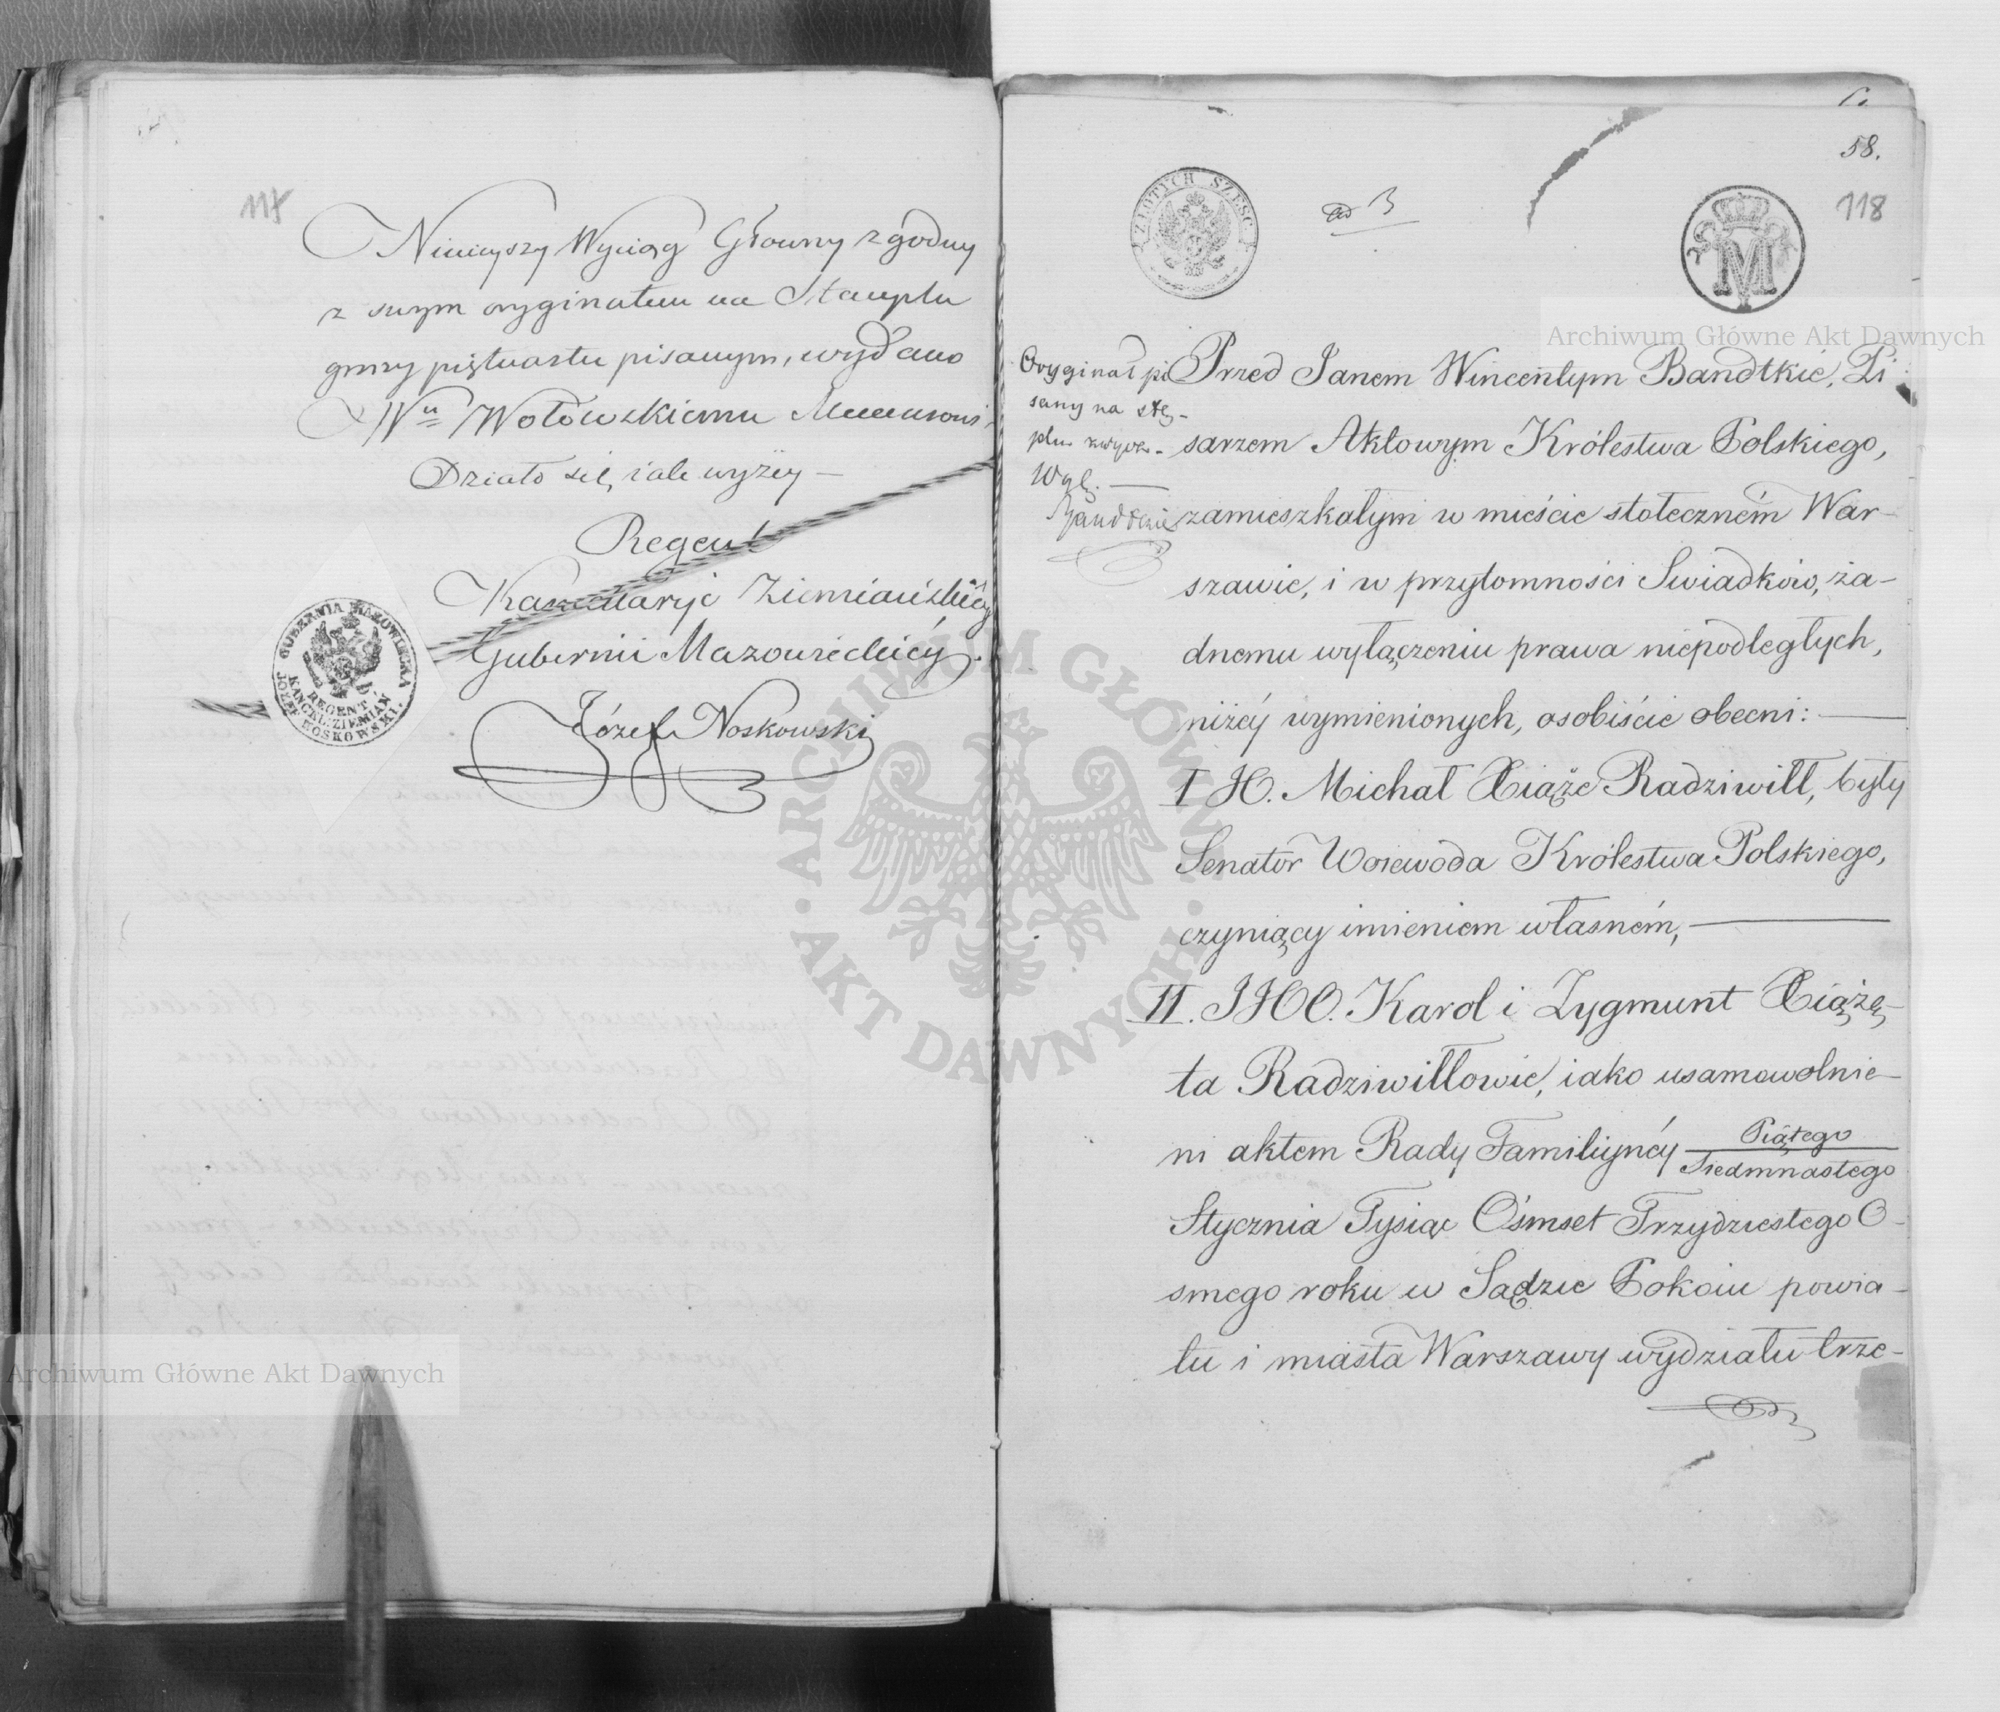 117
Nineyszy Wyciąg Głowny zgodny
z swym oryginałem na Stemplu
groszy piętnastu pisanym, wydano
Wu Wołowskiemu
Działo się, iak wyżey —
Regent
Kancellaryi Ziemiańskiéy
Gubernii Mazowieckiéy.
Józef Noskowski
GUBERNIA MAZOWIECKA
REGENT
KANCEL: ZIEMIAŃ:
JÓZEF NOSKOWSKI.
58.
118
ZŁOTYCH SZEŚĆ
ad B
M
Oryginał pi
sany na stę-
plu
Bandtkie
Przed Janem Wincentym Bandtkie, Pi
sarzem Aktowym Królestwa Polskiego,
zamieszkałym w mieście stołeczném War-
szawie, i w przytomności Swiadków, ża-
dnemu wyłączeniu prawa niepodległych,
niżéy wymienionych, osobiście obecni: —
I JO. Michał Xiąże Radziwiłł, były
Senator Woiewoda Królestwa Polskiego,
czyniący imieniem własném, —
II. JJOO. Karol i Zygmunt Xiążę-
ta Radziwiłłowie, iako usamowolnie-
ni aktem Rady Familiynéy Piątego
Siedmnastego
Stycznia Tysiąc Ośmset Trzydziestego O-
smego roku w Sądzie Pokoiu powia-
tu i miasta Warszawy wydziału trze-
Archiwum Główne Akt Dawnych
Archiwum Główne Akt Dawnych
ARCHIWUM GŁÓWNE AKT DAWNYCH